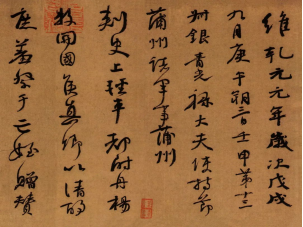 維乾元元年歲次戊戌
九月庚午朔三日壬申第十三
叔銀青光祿大夫使持節
蒲州諸軍事蒲州
刺史上輕車都尉丹楊
縣開國侯真卿以清酌
庶羞祭于亡姪贈贊